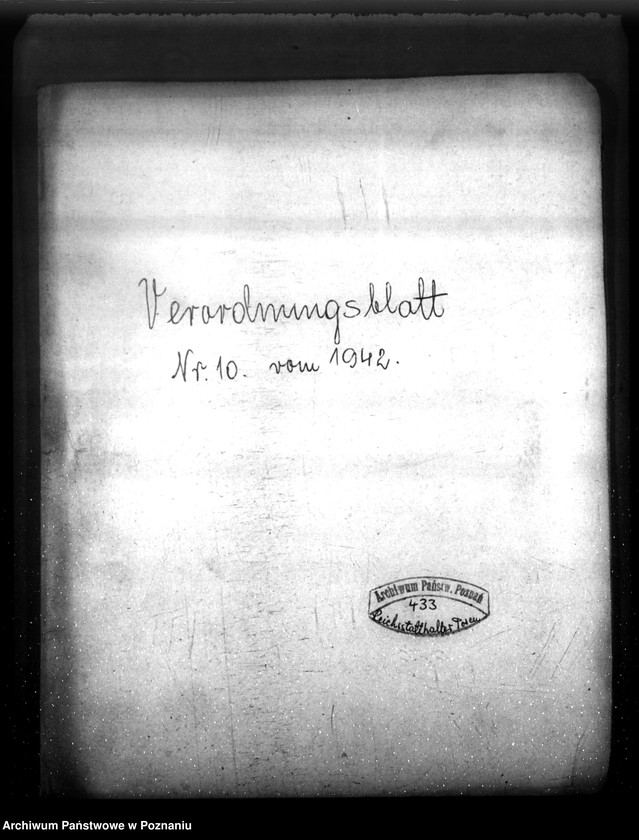 Verordnungsblatt
Nr. 10. vom 1942.
Archiwum Państw. Poznań
433
Reichsstatthalter Posen
Archiwum Państwowe w Poznaniu